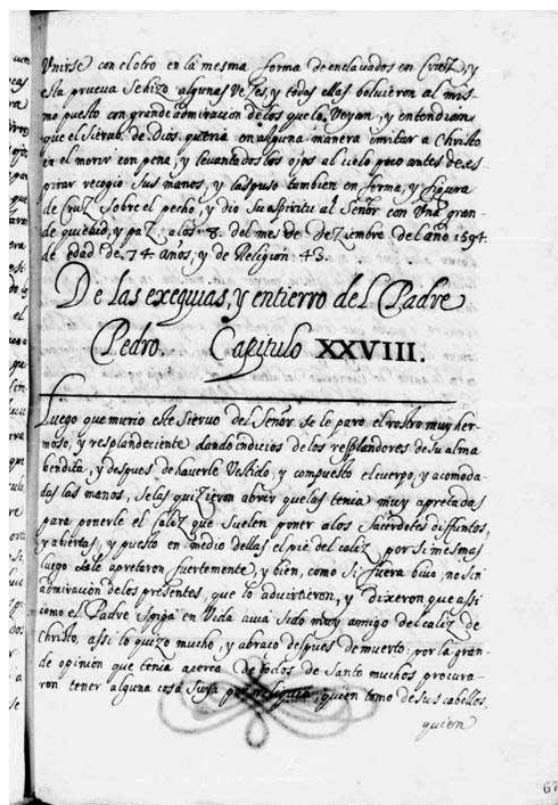 Unirse con el otro en la mesma forma de enclavados en Cruz, y
esta prueva se hizo algunas vezes, y todas ellas bolvieron al mis-
mo puesto con grande admiracion de los que lo veyan, y entendian
que el Siervo de Dios queria en alguna manera imitar a Christo
en el morir con pena, y levantados los ojos al cielo poco antes de es-
pirar recogio sus manos, y las puso tambien en forma, y figura
de Cruz sobre el pecho, y dio su espiritu al Señor con una gran-
de quietud, y paz, a los 8. del mes de Deziembre del año 1594.
de edad de 74 años, y de Religion 43.
De las exequias, y entierro del Padre
Pedro. Capitulo XXVIII.
Luego que murio este Siervo del Señor se le paro el rostro muy her-
moso, y resplandeciente dando indicios de los resplandores de su alma
bendita, y despues de haverle vestido, y compuesto el cuerpo, y acomoda-
das las manos, se las quizieron abrir que las tenia muy apretadas
para ponerle el caliz que suelen poner a los Sacerdotes diffuntos,
y abiertas, y puesto en medio dellas el pie del caliz por si mesmas
luego le apretaron fuertemente, y bien, como si fuera bivo, no sin
admiracion de los presentes, que lo advirtieron, y dixeron que assi
como el Padre Spiga en vida avia sido muy amigo del caliz de
Christo, assi lo quizo mucho, y abraço despues de muerto: por la gran-
de opinion que tenia acerca de todos de Santo muchos procura-
ron tener alguna cosa suya por reliquia, quien tomo de sus cabellos
quien
67